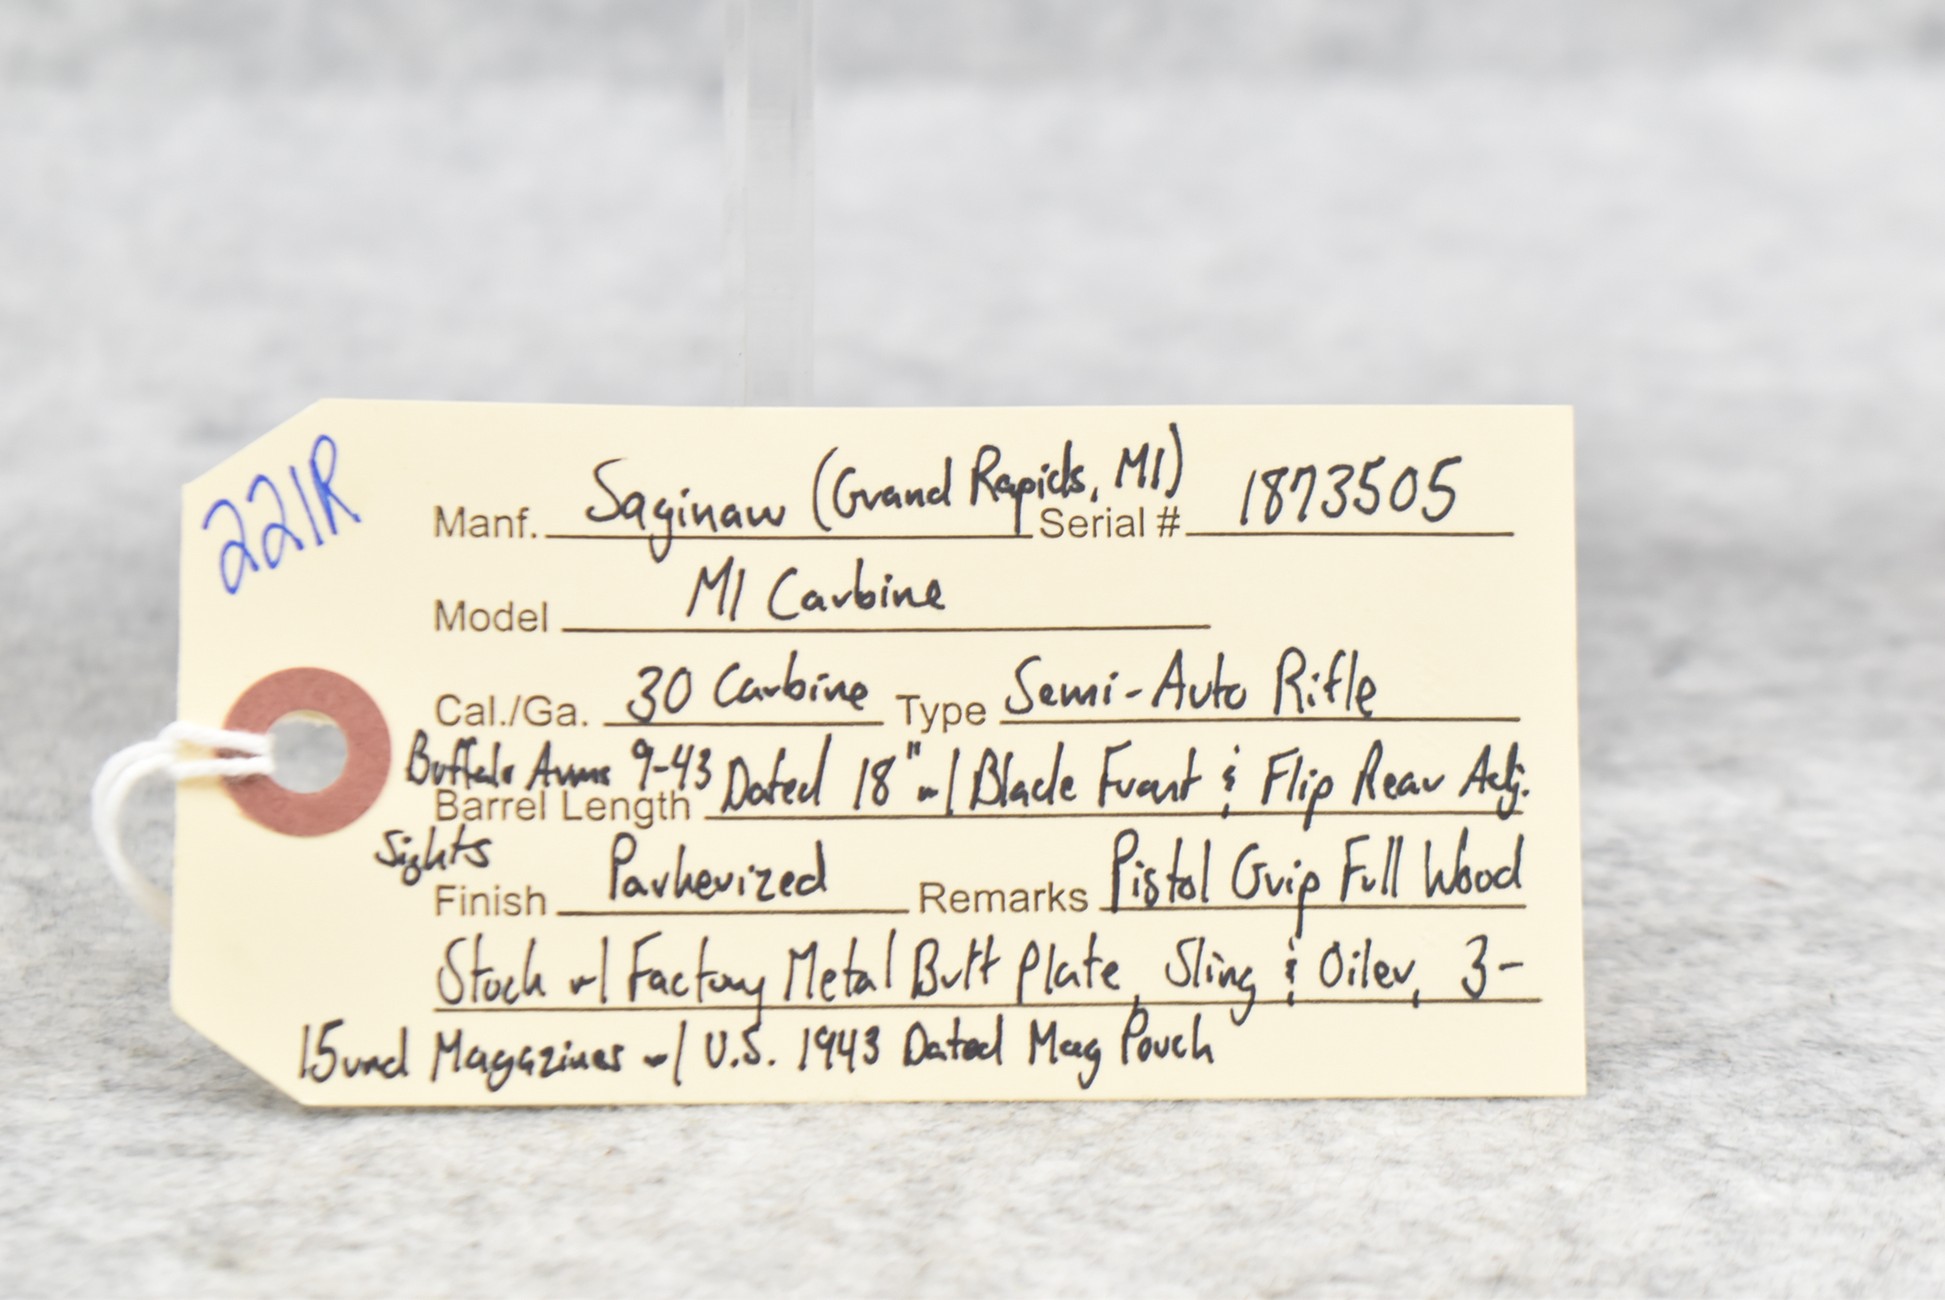 221R
Manf. Saginaw (Grand Rapids, MI) Serial # 1873505
Model M1 Carbine
Cal./Ga. 30 Carbine Type Semi-Auto Rifle
Buffalo Arms 9-43 Dated 18" w/ Blade Front & Flip Rear Adj.
Barrel Length
Sights
Finish Parkerized Remarks Pistol Grip Full Wood
Stock w/ Factory Metal Butt Plate, Sling & Oiler, 3-
15 rnd Magazines w/ U.S. 1943 Dated Mag Pouch